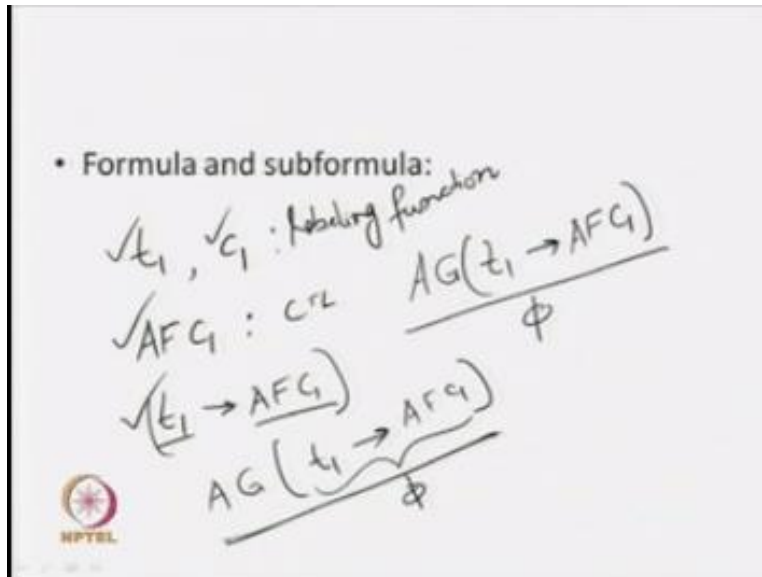 • Formula and subformula:
✓t₁, ✓c₁ : Labeling function
✓AFC₁ : CTL
AG(t₁ → AFC₁)
ϕ
✓(t₁ → AFC₁)
AG(t₁ → AFC₁)
ϕ
NPTEL